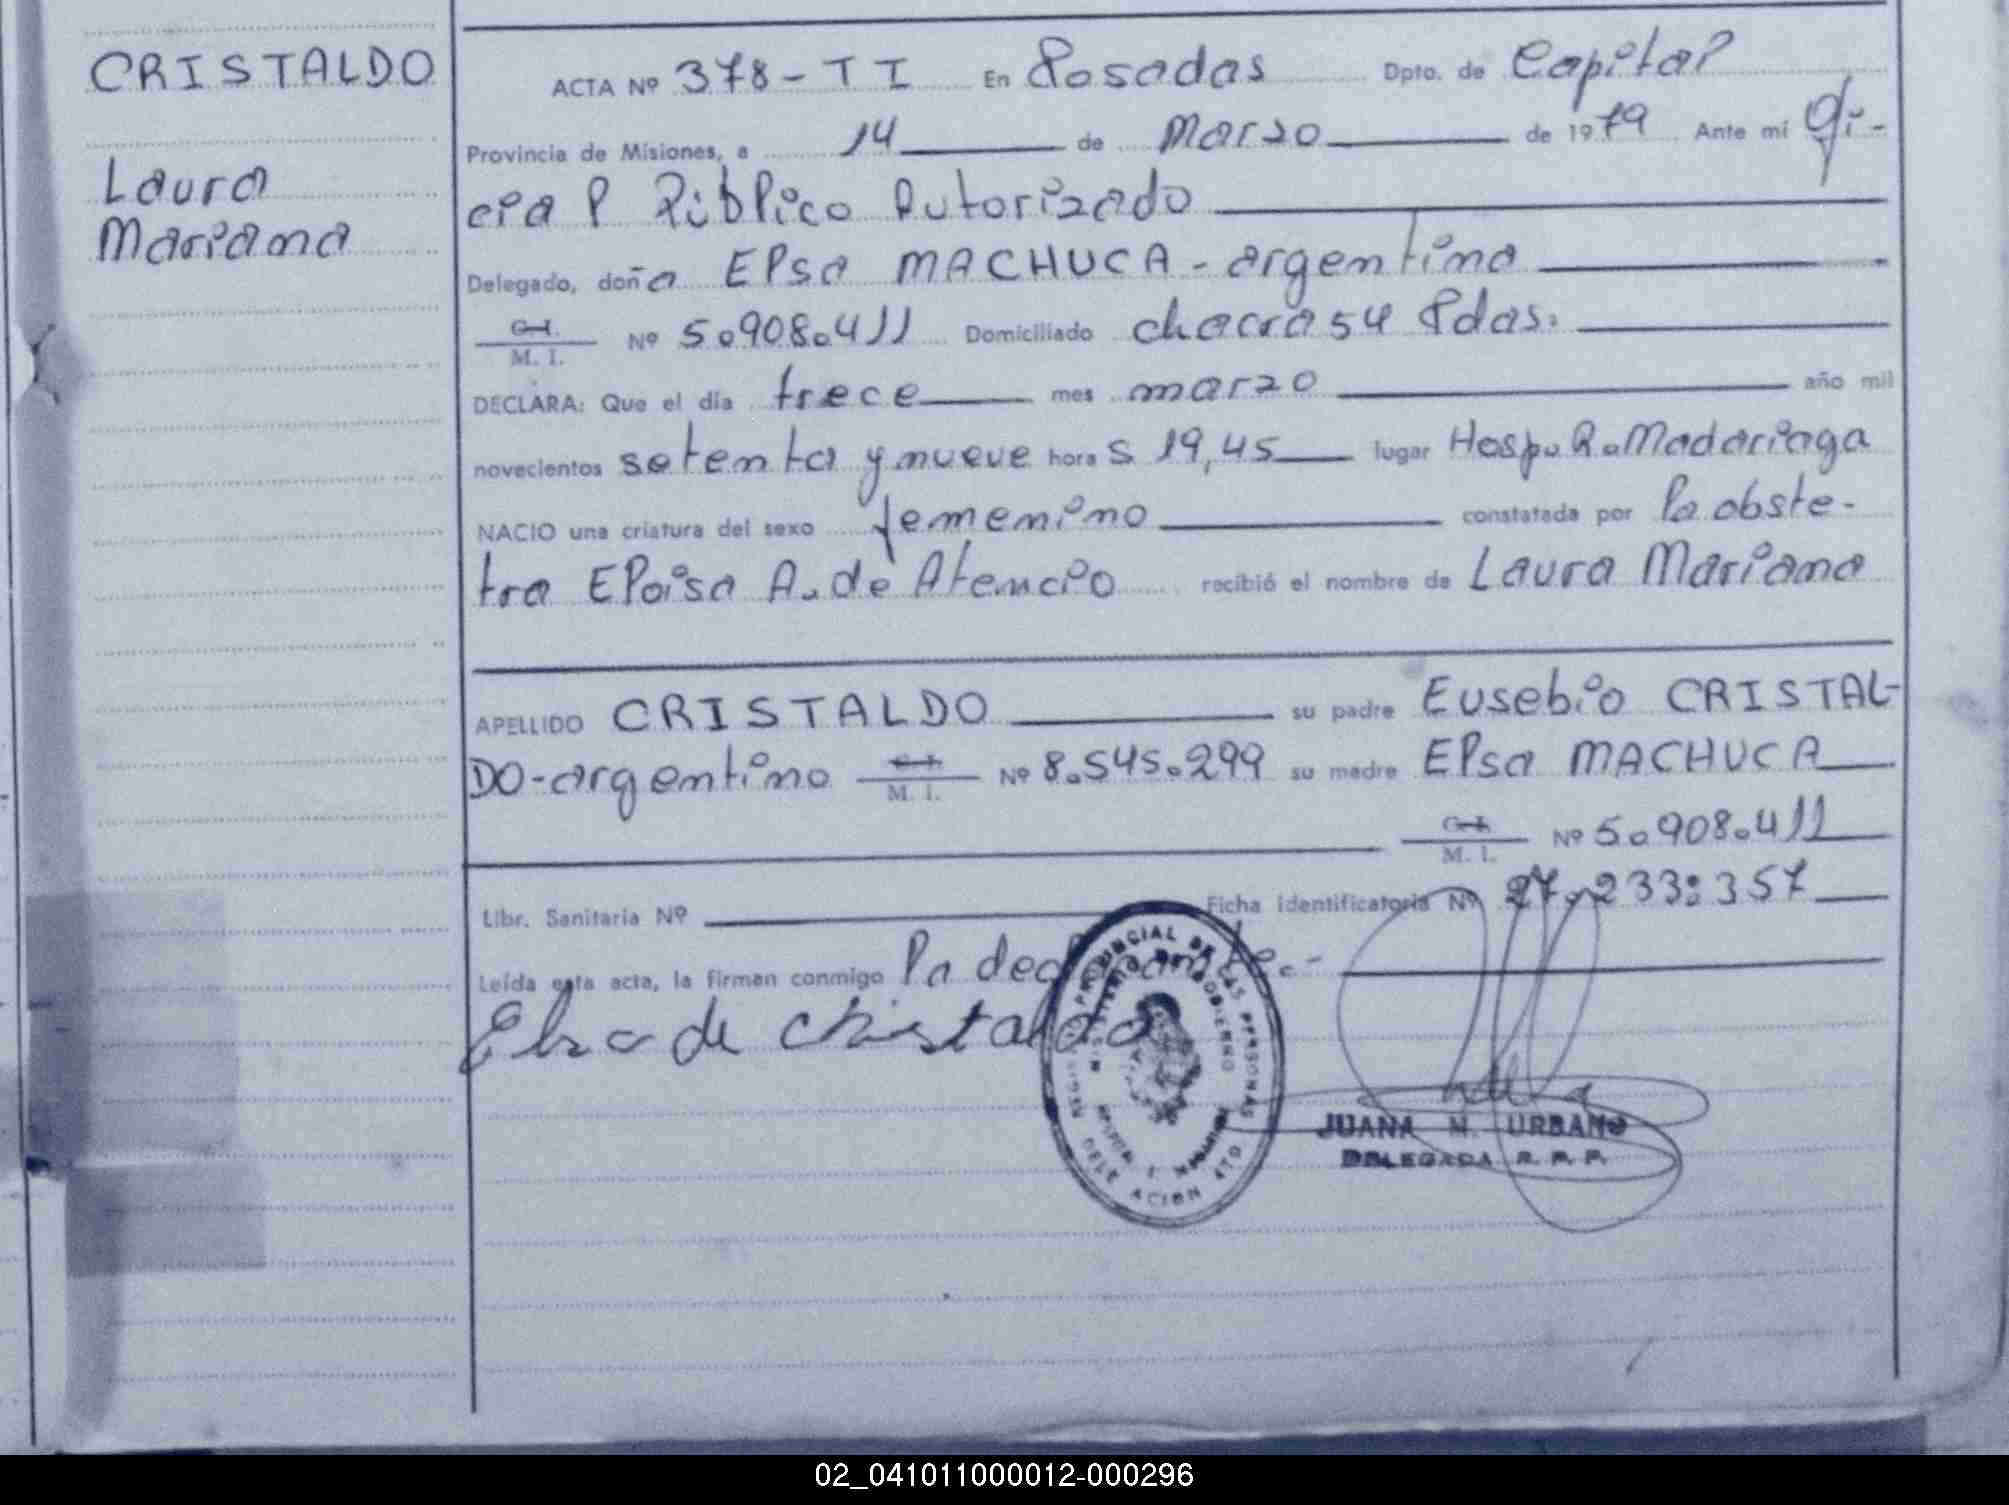 CRISTALDO
Laura
Mariana
ACTA Nº 378-TI En Posadas Dpto. de Capital
Provincia de Misiones, a 14 de Marzo de 1979 Ante mí Ofi-
cial Público Autorizado
Delegado, doña Elsa MACHUCA - argentina
C.I.
M. I. Nº 5.908.411 Domiciliado chacra 54 Pdas.
DECLARA: Que el día trece mes marzo año mil
novecientos setenta y nueve horas 19,45 lugar Hosp. R. Madariaga
NACIO una criatura del sexo femenino constatada por la obste-
tra Eloisa A. de Atencio recibió el nombre de Laura Mariana
APELLIDO CRISTALDO su padre Eusebio CRISTAL-
DO-argentino C.I. M. I. Nº 8.545.299 su madre Elsa MACHUCA
C.I.
M. I. Nº 5.908.411
Libr. Sanitaria Nº Ficha identificatoria Nº 27.233:357
Leída esta acta, la firman conmigo la declarante.-
Elsa de Cristaldo
PROVINCIAL DE LAS PERSONAS
MINISTERIO DE GOBIERNO
JUANA N. URBANO
DELEGADA R. P. P.
02_041011000012-000296